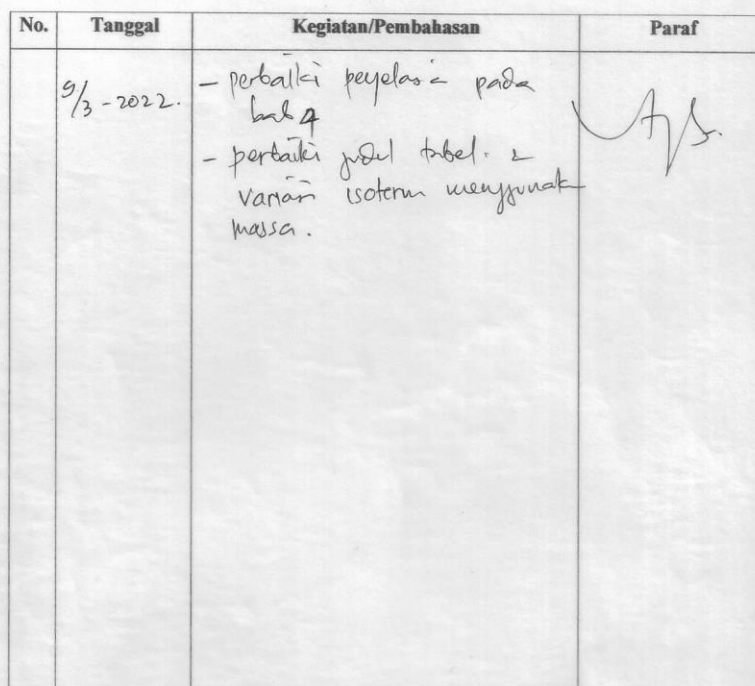 No. Tanggal Kegiatan/Pembahasan Paraf
9/3-2022. - perbaiki penjelasan pada
bab 4
- perbaiki judul tabel. 2
variasi isoterm menggunakan
massa.